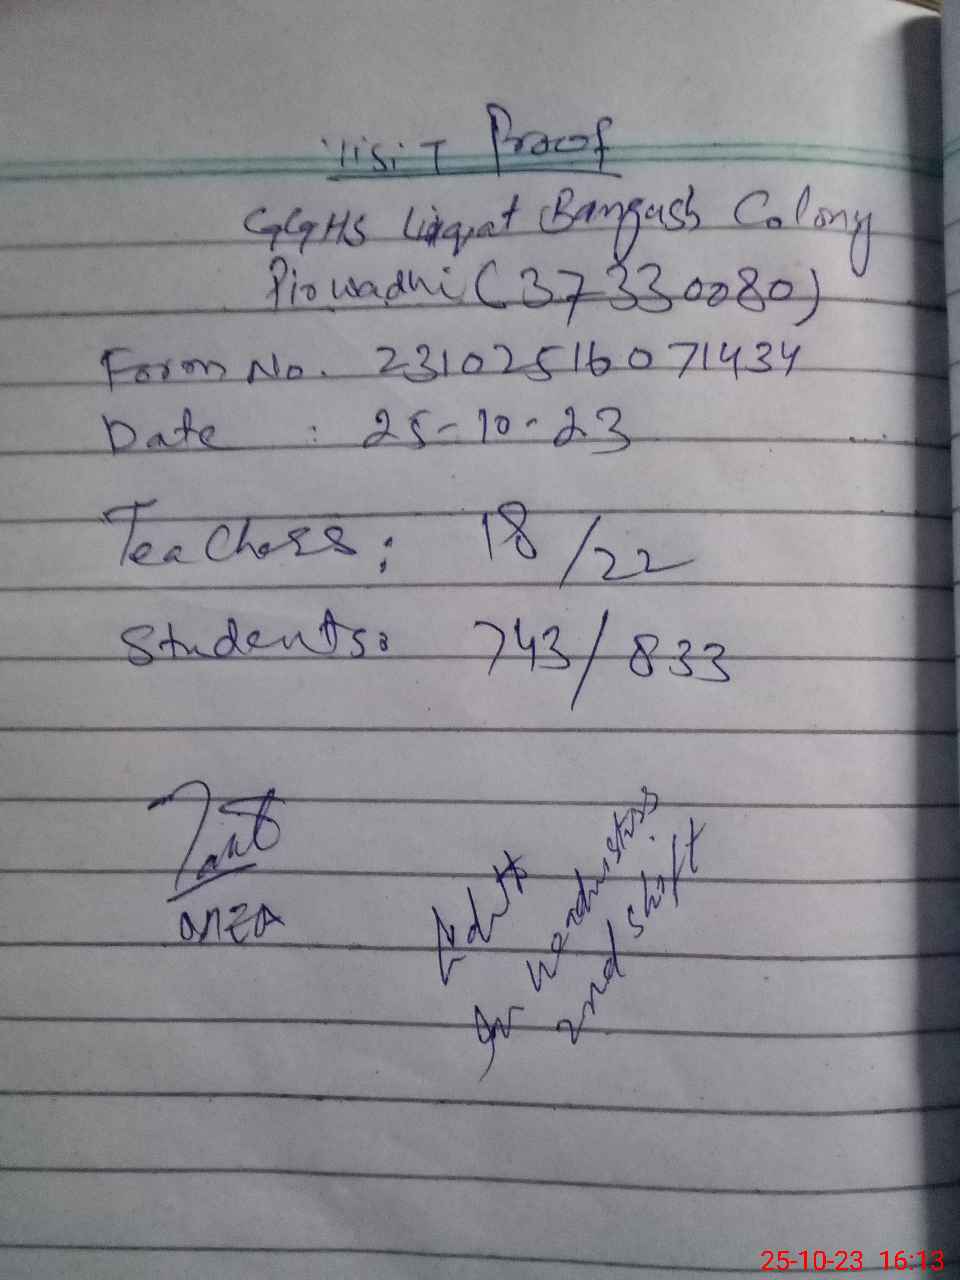 Visit Proof
GGHS Liaqat Bangash Colony
Pirwadhi (37330080)
Form No. 23102516071434
Date : 25-10-23
Teachers: 18/22
Students: 743/833
2nd shift
25-10-23 16:13